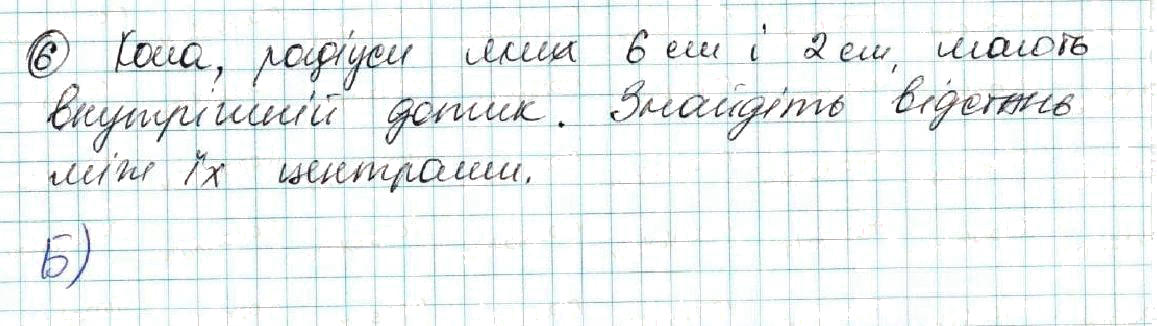 6 Кола, радіуси яких 6 см і 2 см, мають
внутрішній дотик. Знайдіть відстань
між їх центрами.
Б)